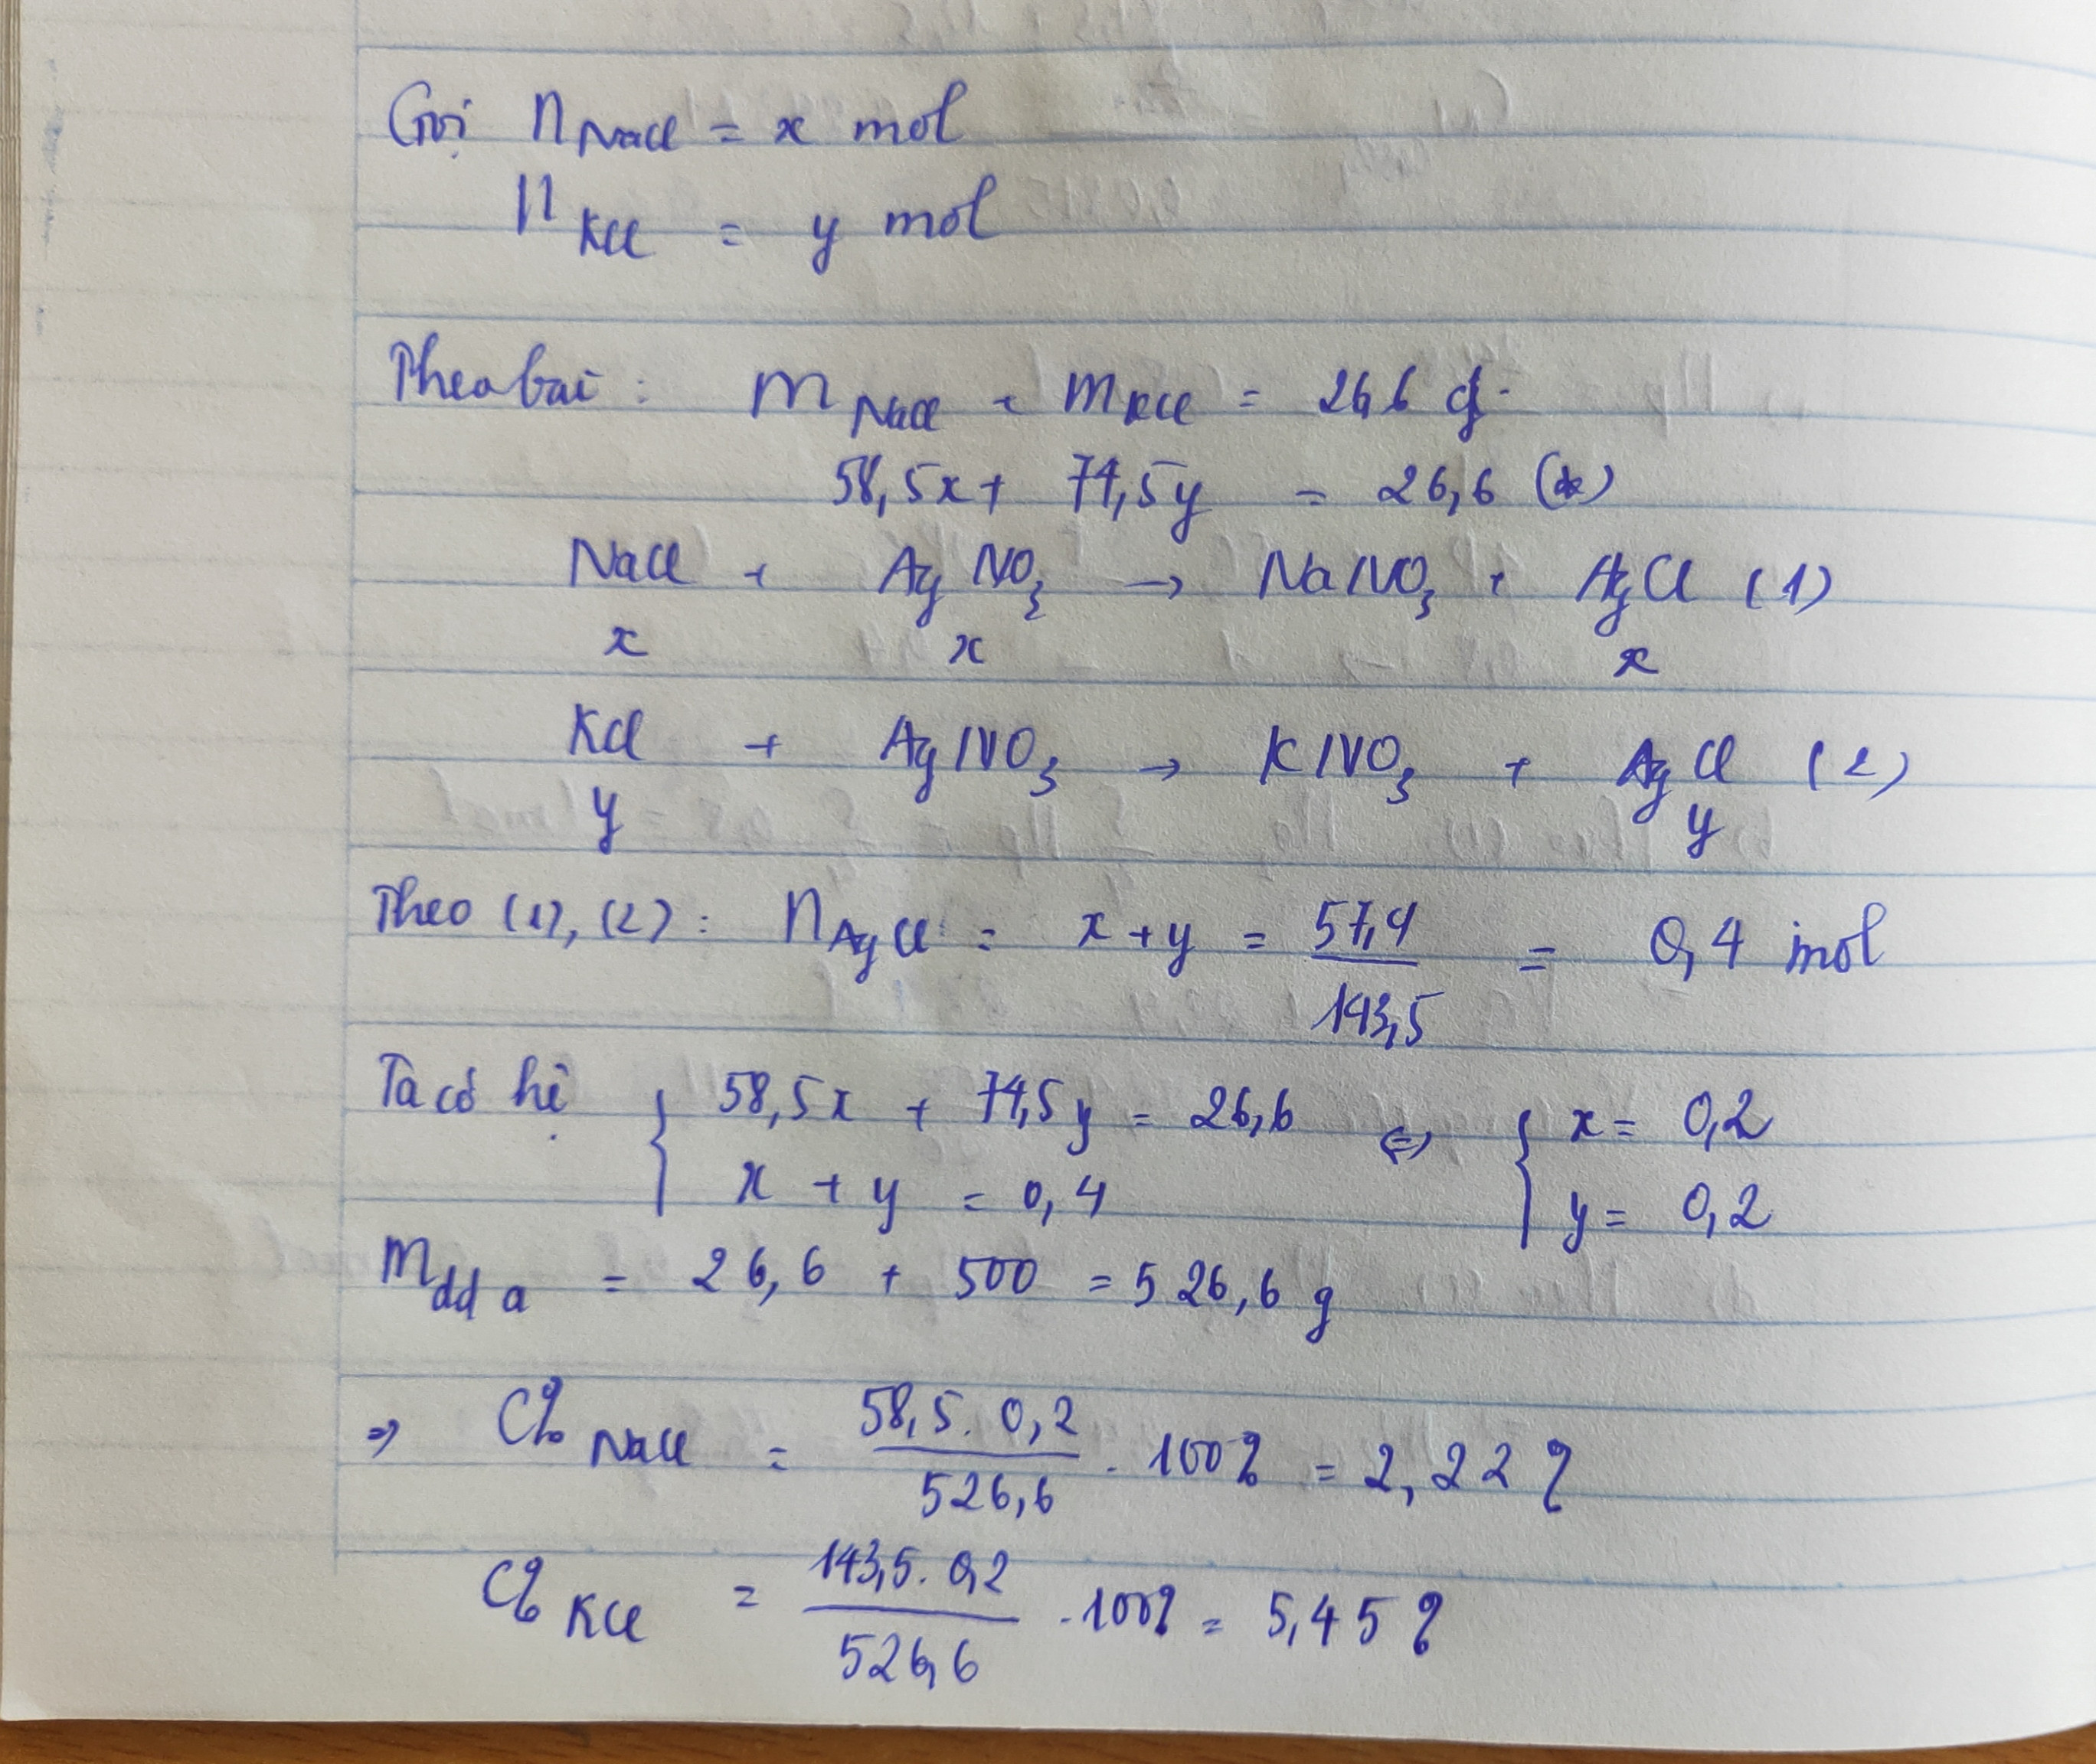 Gọi nNaCl = x mol
nKCl = y mol
Theo bài : mNaCl + mKCl = 26,6 g.
58,5x + 74,5y = 26,6 (*)
NaCl + AgNO3 → NaNO3 + AgCl (1)
x x x
KCl + AgNO3 → KNO3 + AgCl (2)
y y
Theo (1), (2) : nAgCl = x + y = 57,4 / 143,5 = 0,4 mol
Ta có hệ { 58,5x + 74,5y = 26,6 ⇔ { x = 0,2
x + y = 0,4 y = 0,2
mdd a = 26,6 + 500 = 526,6 g
⇒ C% NaCl = 58,5 . 0,2 / 526,6 . 100% = 2,22 %
C% KCl = 143,5 . 0,2 / 526,6 . 100% = 5,45 %